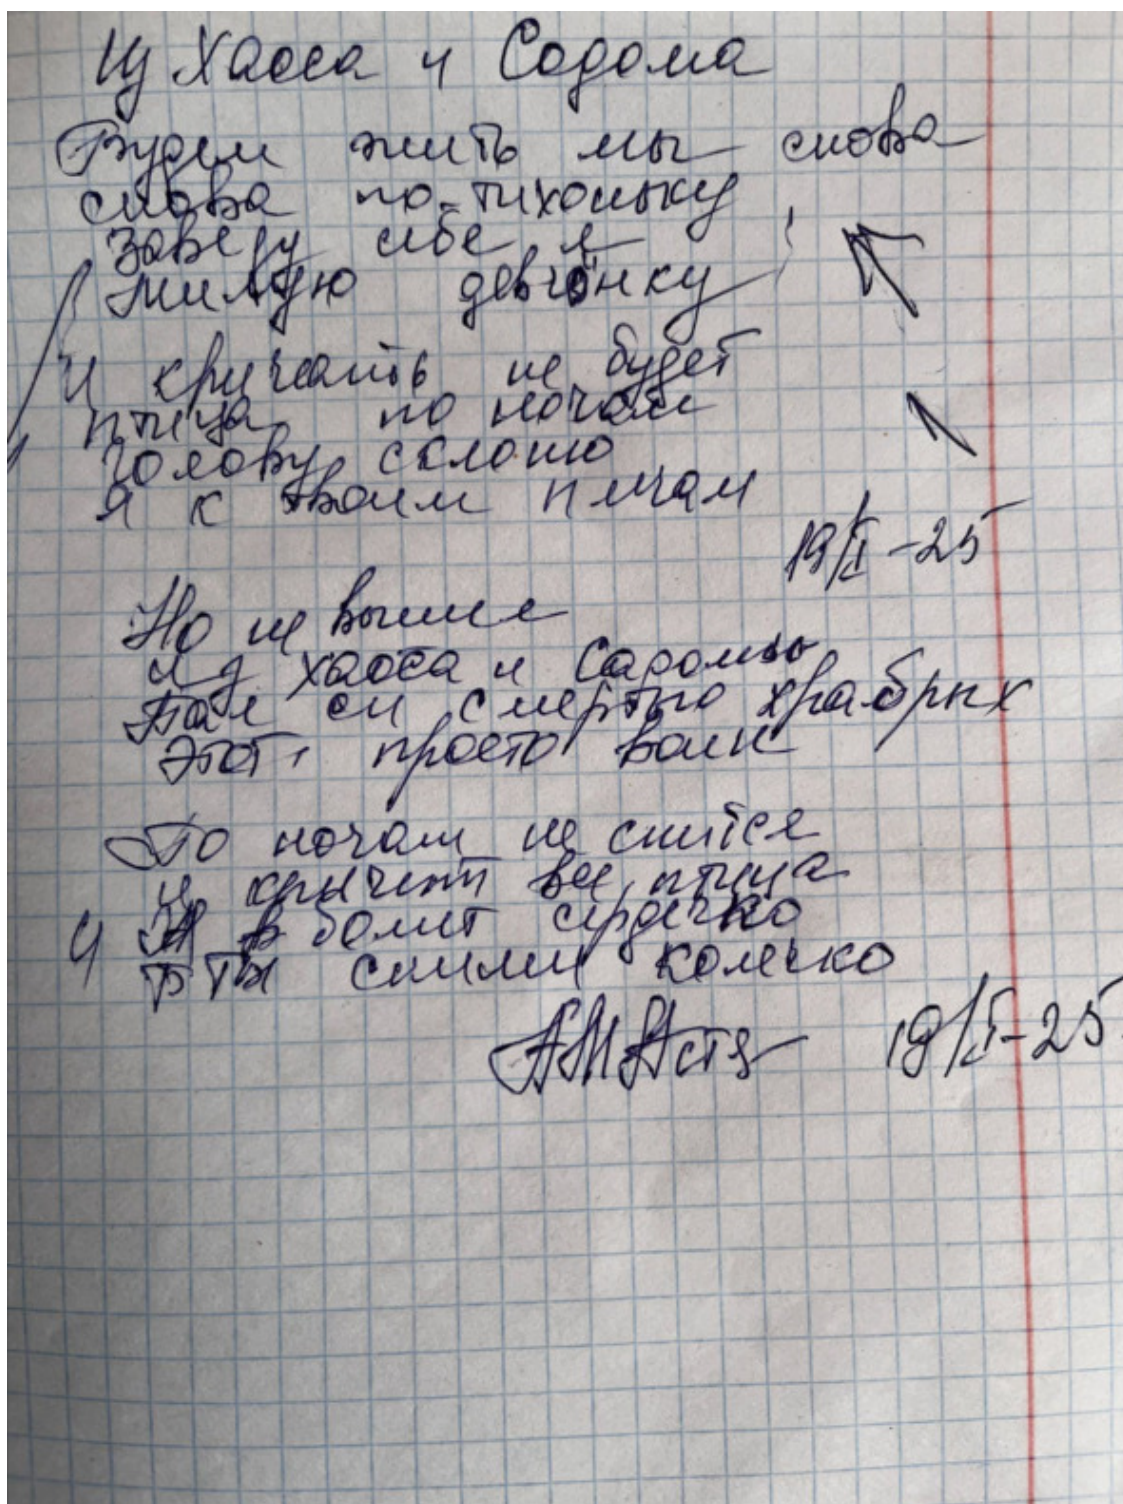 Из Хаоса и Содома
Будем жить мы снова
снова по-тихоньку
заведу себе я
милую девчонку
И кричать не будет
птица по ночам
голову склоню
я к твоим плечам
19/I-25
Но не вышел
из хаоса и Садомы
Пал он смертью храбрых
этот просто воин
По ночам не спится
и крычит все птица
И болит сердечко
ты сними колечко
19/I-25